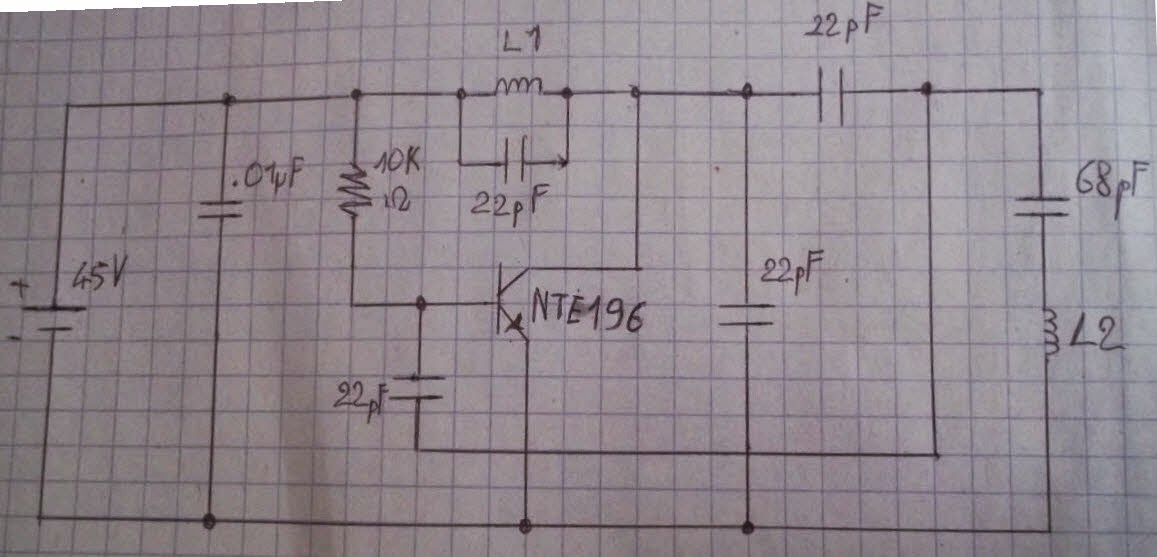 L1
22pF
.01µF
10K
Ω
22pF
68pF
+
45V
-
NTE196
22pF
L2
22pF